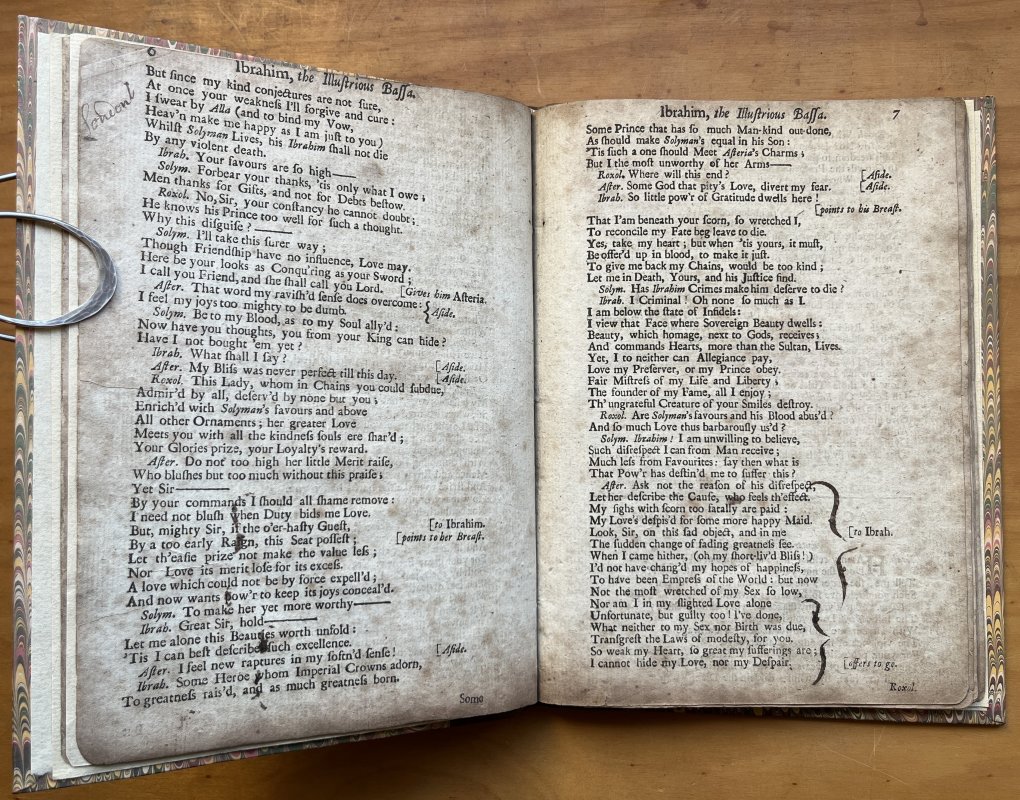 6
Ibrahim, the Illuſtrious Baſſa.
But ſince my kind conjectures are not ſure,
At once your weakneſs I'll forgive and cure :
I ſwear by Alla (and to bind my Vow,
Heav'n make me happy as I am juſt to you)
Whilſt Solyman Lives, his Ibrahim ſhall not die
By any violent death.
Ibrah. Your favours are ſo high——
Solym. Forbear your thanks, 'tis only what I owe ;
Men thanks for Gifts, and not for Debts beſtow.
Roxol. No, Sir, your conſtancy he cannot doubt ;
He knows his Prince too well for ſuch a thought.
Why this diſguiſe ?——
Solym. I'll take this ſurer way ;
Though Friendſhip have no influence, Love may.
Here be your looks as Conqu'ring as your Sword ;
I call you Friend, and ſhe ſhall call you Lord. [Gives him Aſteria.
Aſter. That word my raviſh'd ſenſe does overcome :
I feel my joys too mighty to be dumb. {Aſide.
Solym. Be to my Blood, as to my Soul ally'd :
Now have you thoughts, you from your King can hide ?
Have I not bought 'em yet ?
Ibrah. What ſhall I ſay ? [Aſide.
Aſter. My Bliſs was never perfect till this day. [Aſide.
Roxol. This Lady, whom in Chains you could ſubdue,
Admir'd by all, deſerv'd by none but you ;
Enrich'd with Solyman's favours and above
All other Ornaments ; her greater Love
Meets you with all the kindneſs ſouls ere ſhar'd ;
Your Glories prize, your Loyalty's reward.
Aſter. Do not too high her little Merit raiſe,
Who bluſhes but too much without this praiſe ;
Yet Sir——
By your commands I ſhould all ſhame remove :
I need not bluſh when Duty bids me Love.
But, mighty Sir, if the o'er-haſty Gueſt, [to Ibrahim.
By a too early Raign, this Seat poſſeſt ; [points to her Breaſt.
Let th'eaſie prize not make the value leſs ;
Nor Love its merit loſe for its exceſs.
A love which could not be by force expell'd ;
And now wants pow'r to keep its joys conceal'd.
Solym. To make her yet more worthy——
Ibrah. Great Sir, hold——
Let me alone this Beauties worth unfold :
'Tis I can beſt deſcribe ſuch excellence.
Aſter. I feel new raptures in my ſoftn'd ſenſe ! [Aſide.
Ibrah. Some Heroe whom Imperial Crowns adorn,
To greatneſs rais'd, and as much greatneſs born.
Some
Ibrahim, the Illuſtrious Baſſa. 7
Some Prince that has ſo much Man-kind out-done,
As ſhould make Solyman's equal in his Son :
'Tis ſuch a one ſhould Meet Aſteria's Charms ;
But I the moſt unworthy of her Arms——
Roxol. Where will this end ? [Aſide.
Aſter. Some God that pity's Love, divert my fear. [Aſide.
Ibrah. So little pow'r of Gratitude dwells here !
[points to his Breaſt.
That I'am beneath your ſcorn, ſo wretched I,
To reconcile my Fate beg leave to die.
Yes, take my heart ; but when 'tis yours, it muſt,
Be offer'd up in blood, to make it juſt.
To give me back my Chains, would be too kind ;
Let me in Death, Yours, and his Juſtice find.
Solym. Has Ibrahim Crimes make him deſerve to die ?
Ibrah. I Criminal ! Oh none ſo much as I.
I am below the ſtate of Infidels :
I view that Face where Sovereign Beauty dwells :
Beauty, which homage, next to Gods, receives ;
And commands Hearts, more than the Sultan, Lives.
Yet, I to neither can Allegiance pay,
Love my Preſerver, or my Prince obey.
Fair Miſtreſs of my Life and Liberty ;
The founder of my Fame, all I enjoy ;
Th' ungrateful Creature of your Smiles deſtroy.
Roxol. Are Solyman's favours and his Blood abus'd ?
And ſo much Love thus barbarouſly us'd ?
Solym. Ibrahim ! I am unwilling to believe,
Such diſreſpect I can from Man receive ;
Much leſs from Favourites : ſay then what is
That Pow'r has deſtin'd me to ſuffer this ?
Aſter. Ask not the reaſon of his diſreſpect,
Let her deſcribe the Cauſe, who feels th'effect.
My ſighs with ſcorn too fatally are paid :
My Love's deſpis'd for ſome more happy Maid.
Look, Sir, on this ſad object, and in me [to Ibrah.
The ſudden change of fading greatneſs ſee.
When I came hither, (oh my ſhort-liv'd Bliſs !)
I'd not have chang'd my hopes of happineſs,
To have been Empreſs of the World : but now
Not the moſt wretched of my Sex ſo low,
Nor am I in my ſlighted Love alone
Unfortunate, but guilty too ! I've done,
What neither to my Sex nor Birth was due,
Tranſgreſt the Laws of modeſty, for you.
So weak my Heart, ſo great my ſufferings are ;
I cannot hide my Love, nor my Deſpair. [offers to go.
Roxol.